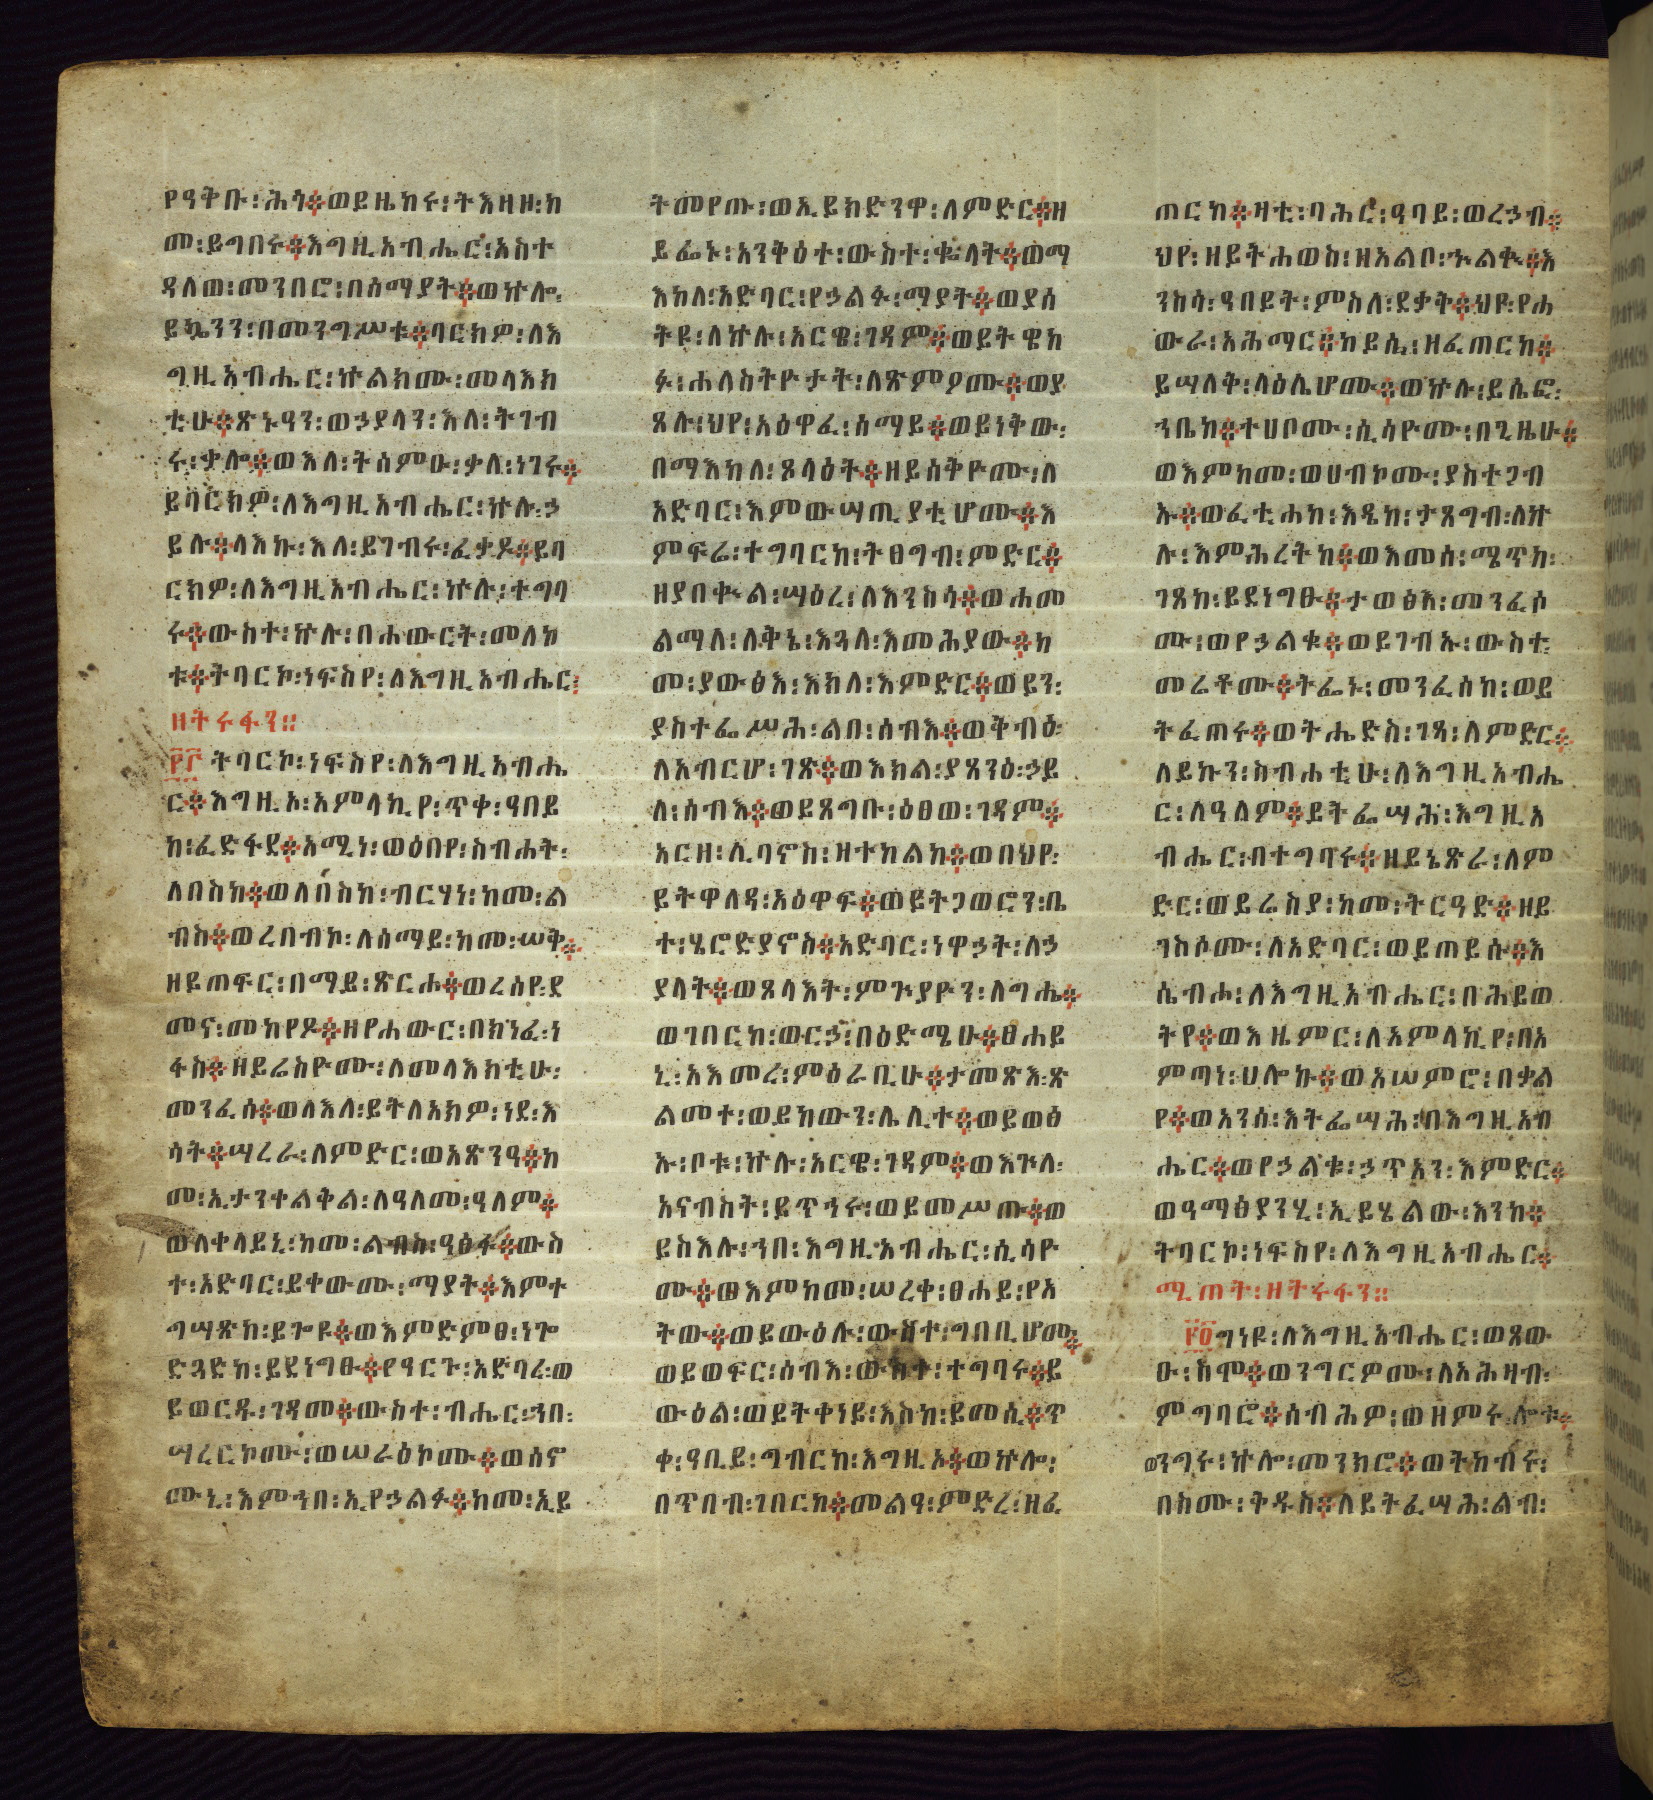 የዓቅቡ፡ሕጎ፨ወይዜከሩ፡ትእዛዞ፡ከ
መ፡ይግበሩ፨እግዚአብሔር፡አስተ
ዳለወ፡መንበሮ፡በሰማያት፨ወኵሎ፡
ይኴንን፡በመንግሥቱ፨ባርክዎ፡ለእ
ግዚአብሔር፡ኵልክሙ፡መላእክ
ቲሁ፨ጽኑዓን፡ወኃያላን፡እለ፡ትገብ
ሩ፡ቃሎ፨ወእለ፡ትሰምዑ፡ቃለ፡ነገሩ፨
ይባርክዎ፡ለእግዚአብሔር፡ኵሉ፡ኃ
ይሉ፨ላእኩ፡እለ፡ይገብሩ፡ፈቃዶ፨ይባ
ርክዎ፡ለእግዚአብሔር፡ኵሉ፡ተግባ
ሩ፨ውስተ፡ኵሉ፡በሐውርት፡መለኮ
ቱ፨ትባርኮ፡ነፍስየ፡ለእግዚአብሔር፡
ዘትሩፋን፡፡
፻፫ ትባርኮ፡ነፍስየ፡ለእግዚአብሔ
ር፨እግዚአ፡አምላኪየ፡ጥቀ፡ዓበይ
ከ፡ፈድፋደ፨አሚነ፡ወዕበየ፡ስብሐት፡
ለበስከ፨ወለበስከ፡ብርሃነ፡ከመ፡ል
ብስ፨ወረበብኮ፡ለሰማይ፡ከመ፡ሠቅ፨
ዘይጠፍር፡በማይ፡ጽርሐ፨ወረሰየ፡ደ
መና፡መከየዶ፨ዘየሐውር፡በክነፈ፡ነ
ፋስ፨ዘይሬስዮሙ፡ለመላእክቲሁ፡
መንፈሰ፨ወለእለ፡ይትለአክዎ፡ነደ፡እ
ሳት፨ሣረራ፡ለምድር፡ወአጽንዓ፨ከ
መ፡ኢታንቀልቅል፡ለዓለመ፡ዓለም፨
ወለቀላይኒ፡ከመ፡ልብስ፡ዓፅፋ፨ውስ
ተ፡አድባር፡ይቀውሙ፡ማያት፨እምተ
ግሣጽከ፡ይጐዩ፨ወእምድምፀ፡ነጐ
ድጓድከ፡ይደነግፁ፨የዓርጉ፡አድባረ፡ወ
ይወርዱ፡ገዳመ፨ውስተ፡ብሔር፡ኀበ፡
ሣረርኮሙ፡ወሠራዕኮሙ፨ወሰኖ
ሙኒ፡እምኀበ፡ኢየኃልፉ፨ከመ፡ኢይ
ትመየጡ፡ወኢይክድንዋ፡ለምድር፨ዘ
ይፌኑ፡አንቅዕተ፡ውስተ፡ቈላት፨ወማ
እከለ፡አድባር፡የኃልፉ፡ማያት፨ወያሰ
ትዩ፡ለኵሉ፡አርዌ፡ገዳም፨ወይትዌከ
ፉ፡ሐለስትዮታት፡ለጽምዖሙ፨ወያ
ጸሉ፡ህየ፡አዕዋፈ፡ሰማይ፨ወይነቅው፡
በማእከለ፡ጾላዕት፨ዘይሰቅዮሙ፡ለ
አድባር፡እምውሣጢያቲሆሙ፨እ
ምፍሬ፡ተግባርከ፡ትፀግብ፡ምድር፨
ዘያበቍል፡ሣዕረ፡ለእንስሳ፨ወሐመ
ልማለ፡ለቅኔ፡እጓለ፡እመሕያው፨ከ
መ፡ያውፅእ፡እክለ፡እምድር፨ወይን፡
ያስተፌሥሕ፡ልበ፡ሰብእ፨ወቅብዕ፡
ለአብርሆ፡ገጽ፨ወእክል፡ያጸንዕ፡ኃይ
ለ፡ሰብእ፨ወይጸግቡ፡ዕፀወ፡ገዳም፨
አርዘ፡ሊባኖስ፡ዘተከልከ፨ወበህየ፡
ይትዋለዳ፡አዕዋፍ፨ወይትጋወሮን፡ቤ
ተ፡ሄሮድያኖስ፨አድባር፡ነዋኃት፡ለኃ
ያላት፨ወጸላእት፡ምጕያዮን፡ለግሔ፨
ወገበርከ፡ወርኃ፡በዕድሜሁ፨ፀሐይ
ኒ፡አእመረ፡ምዕራቢሁ፨ታመጽእ፡ጽ
ልመተ፡ወይከውን፡ሌሊተ፨ወይወፅ
ኡ፡ቦቱ፡ኵሉ፡አርዌ፡ገዳም፨ወእጕለ፡
አናብስት፡ይጥኅሩ፡ወይመሥጡ፨ወ
ይስእሉ፡ኀበ፡እግዚአብሔር፡ሲሳዮ
ሙ፨ወእምከመ፡ሠረቀ፡ፀሐይ፡የአ
ትው፨ወይውዕሉ፡ውስተ፡ግበቢሆሙ፨
ወይወፍር፡ሰብእ፡ውስተ፡ተግባሩ፨ይ
ውዕል፡ወይትቀነይ፡እስከ፡ይመሲ፨ጥ
ቀ፡ዓቢይ፡ግብርከ፡እግዚኦ፨ወኵሎ፡
በጥበብ፡ገበርከ፨መልዓ፡ምድረ፡ዘፈ
ጠርከ፨ዛቲ፡ባሕር፡ዓባይ፡ወረኃብ፨
ህየ፡ዘይትሐወስ፡ዘአልቦ፡ኍልቍ፨እ
ንስሳ፡ዓበይት፡ምስለ፡ደቃቅ፨ህየ፡የሐ
ውራ፡አሕማር፨ከይሲ፡ዘፈጠርከ፨
ይሣለቅ፡ላዕሌሆሙ፨ወኵሉ፡ይሴፎ፡
ኀቤከ፨ተሀቦሙ፡ሲሳዮሙ፡በጊዜሁ፨
ወእምከመ፡ወሀብኮሙ፡ያስተጋብ
ኡ፨ወፈቲሐከ፡እዴከ፡ታጸግብ፡ለኵ
ሉ፡እምሕረትከ፨ወእመሰ፡ሜጥከ፡
ገጸከ፡ይደነግፁ፨ታወፅእ፡መንፈሶ
ሙ፡ወየኃልቁ፨ወይገብኡ፡ውስተ፡
መሬቶሙ፨ትፌኑ፡መንፈሰከ፡ወይ
ትፈጠሩ፨ወትሔድስ፡ገጻ፡ለምድር፨
ለይኩን፡ስብሐቲሁ፡ለእግዚአብሔ
ር፡ለዓለም፨ይትፌሣሕ፡እግዚአ
ብሔር፡በተግባሩ፨ዘይኔጽራ፡ለም
ድር፡ወይሬስያ፡ከመ፡ትርዓድ፨ዘይ
ገስሶሙ፡ለአድባር፡ወይጠይሱ፨እ
ሴብሖ፡ለእግዚአብሔር፡በሕይወ
ትየ፨ወእዜምር፡ለአምላኪየ፡በአ
ምጣነ፡ሀሎኩ፨ወአሠምሮ፡በቃል
የ፨ወአንሰ፡እትፌሣሕ፡በእግዚአብ
ሔር፨ወየኃልቁ፡ኃጥአን፡እምድር፨
ወዓማፅያንሂ፡ኢይሄልው፡እንከ፨
ትባርኮ፡ነፍስየ፡ለእግዚአብሔር፨
ሚጠት፡ዘትሩፋን፡፡
፻፬ ግነዩ፡ለእግዚአብሔር፡ወጸው
ዑ፡ስሞ፨ወንግርዎሙ፡ለአሕዛብ፡
ምግባሮ፨ሰብሕዎ፡ወዘምሩ፡ሎቱ፨
ወንግሩ፡ኵሎ፡መንክሮ፨ወትከብሩ፡
በስሙ፡ቅዱስ፨ለይትፈሣሕ፡ልብ፡